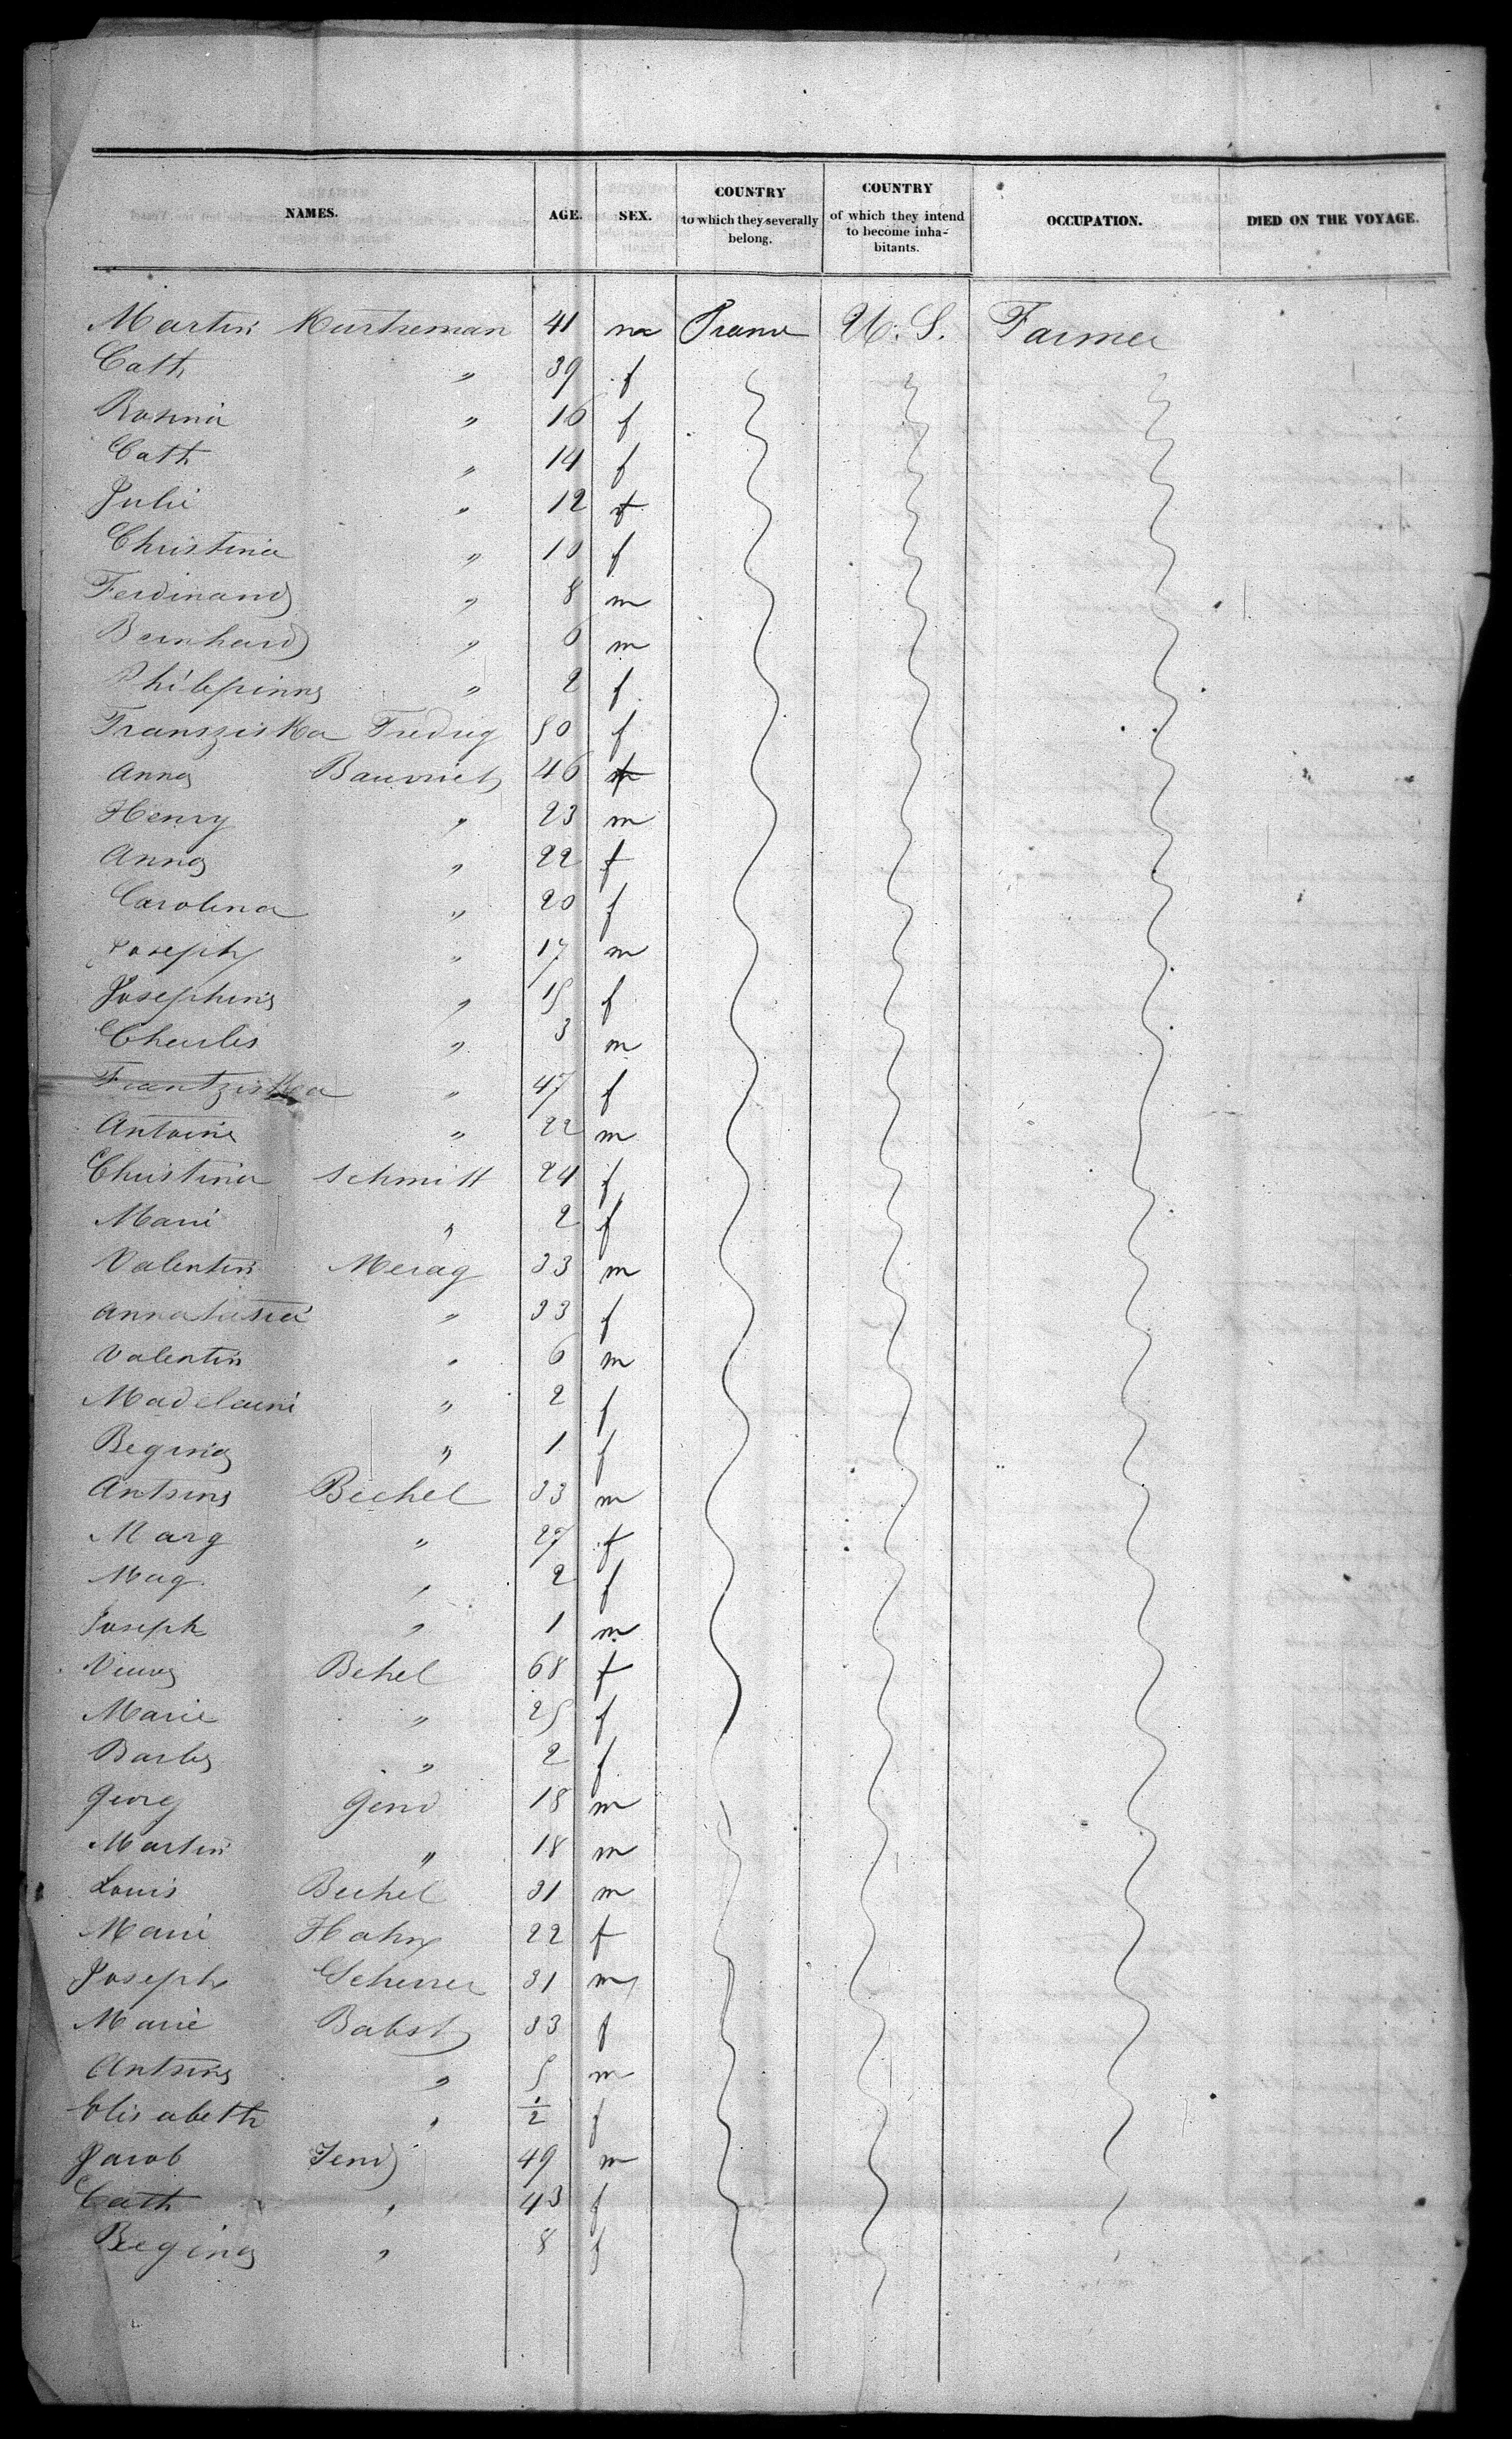 NAMES. AGE. SEX. COUNTRY to which they severally belong. COUNTRY of which they intend to become inha-bitants. OCCUPATION. DIED ON THE VOYAGE.
Martin Kurtzeman 41 m France U. S. Farmer
Cath " 39 f
Rosina " 16 f
Cath " 14 f
Julie " 12 f
Christina " 10 f
Ferdinand " 8 m
Bernhard " 6 m
Philepinne " 2 f
Franzziska Fredrig 50 f
Anna 46 f
Henry " 23 m
Anna " 22 f
Carolina " 20 f
Joseph " 17 m
Josephine " 15 f
Charles " 3 m
Frantziska " 47 f
Antoine " 22 m
Christina Schmitt 24 f
Marie " 2 f
Valentin Merag 33 m
Annatasia " 33 f
Valentin " 6 m
Madelaine " 2 f
Regina " 1 f
Antoine Bechel 33 m
Marg " 27 f
Mag. " 2 f
Joseph " 1 m
Veuve Behel 68 f
Marie " 25 f
Barbe " 2 f
Georg Gend 18 m
Martin " 18 m
Louis Bechel 31 m
Marie Hahn 22 f
Joseph Scherrer 31 m
Marie Babst 33 f
Antoine " 5 m
Elisabeth " 1/2 f
Jacob Jend 49 m
Cath " 43 f
Regina " 8 f